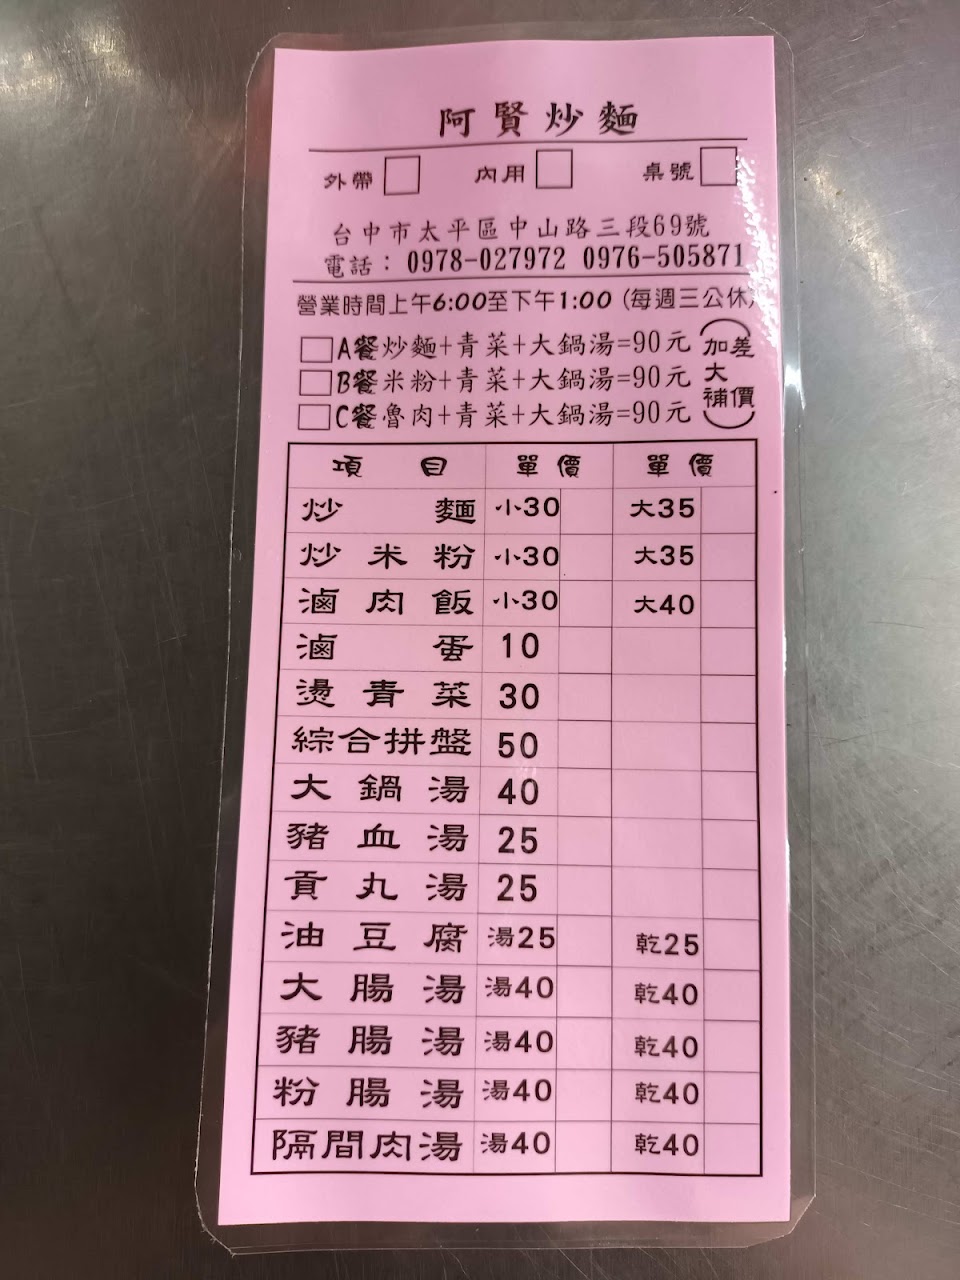 阿賢炒麵
外帶 內用 桌號
台中市太平區中山路三段69號
電話：0978-027972 0976-505871
營業時間上午6:00至下午1:00 (每週三公休)
A餐炒麵+青菜+大鍋湯=90元
B餐米粉+青菜+大鍋湯=90元
C餐魯肉+青菜+大鍋湯=90元
(加大補差價)
項目 單價 單價
炒麵 小30 大35
炒米粉 小30 大35
滷肉飯 小30 大40
滷蛋 10
燙青菜 30
綜合拼盤 50
大鍋湯 40
豬血湯 25
貢丸湯 25
油豆腐 湯25 乾25
大腸湯 湯40 乾40
豬腸湯 湯40 乾40
粉腸湯 湯40 乾40
隔間肉湯 湯40 乾40